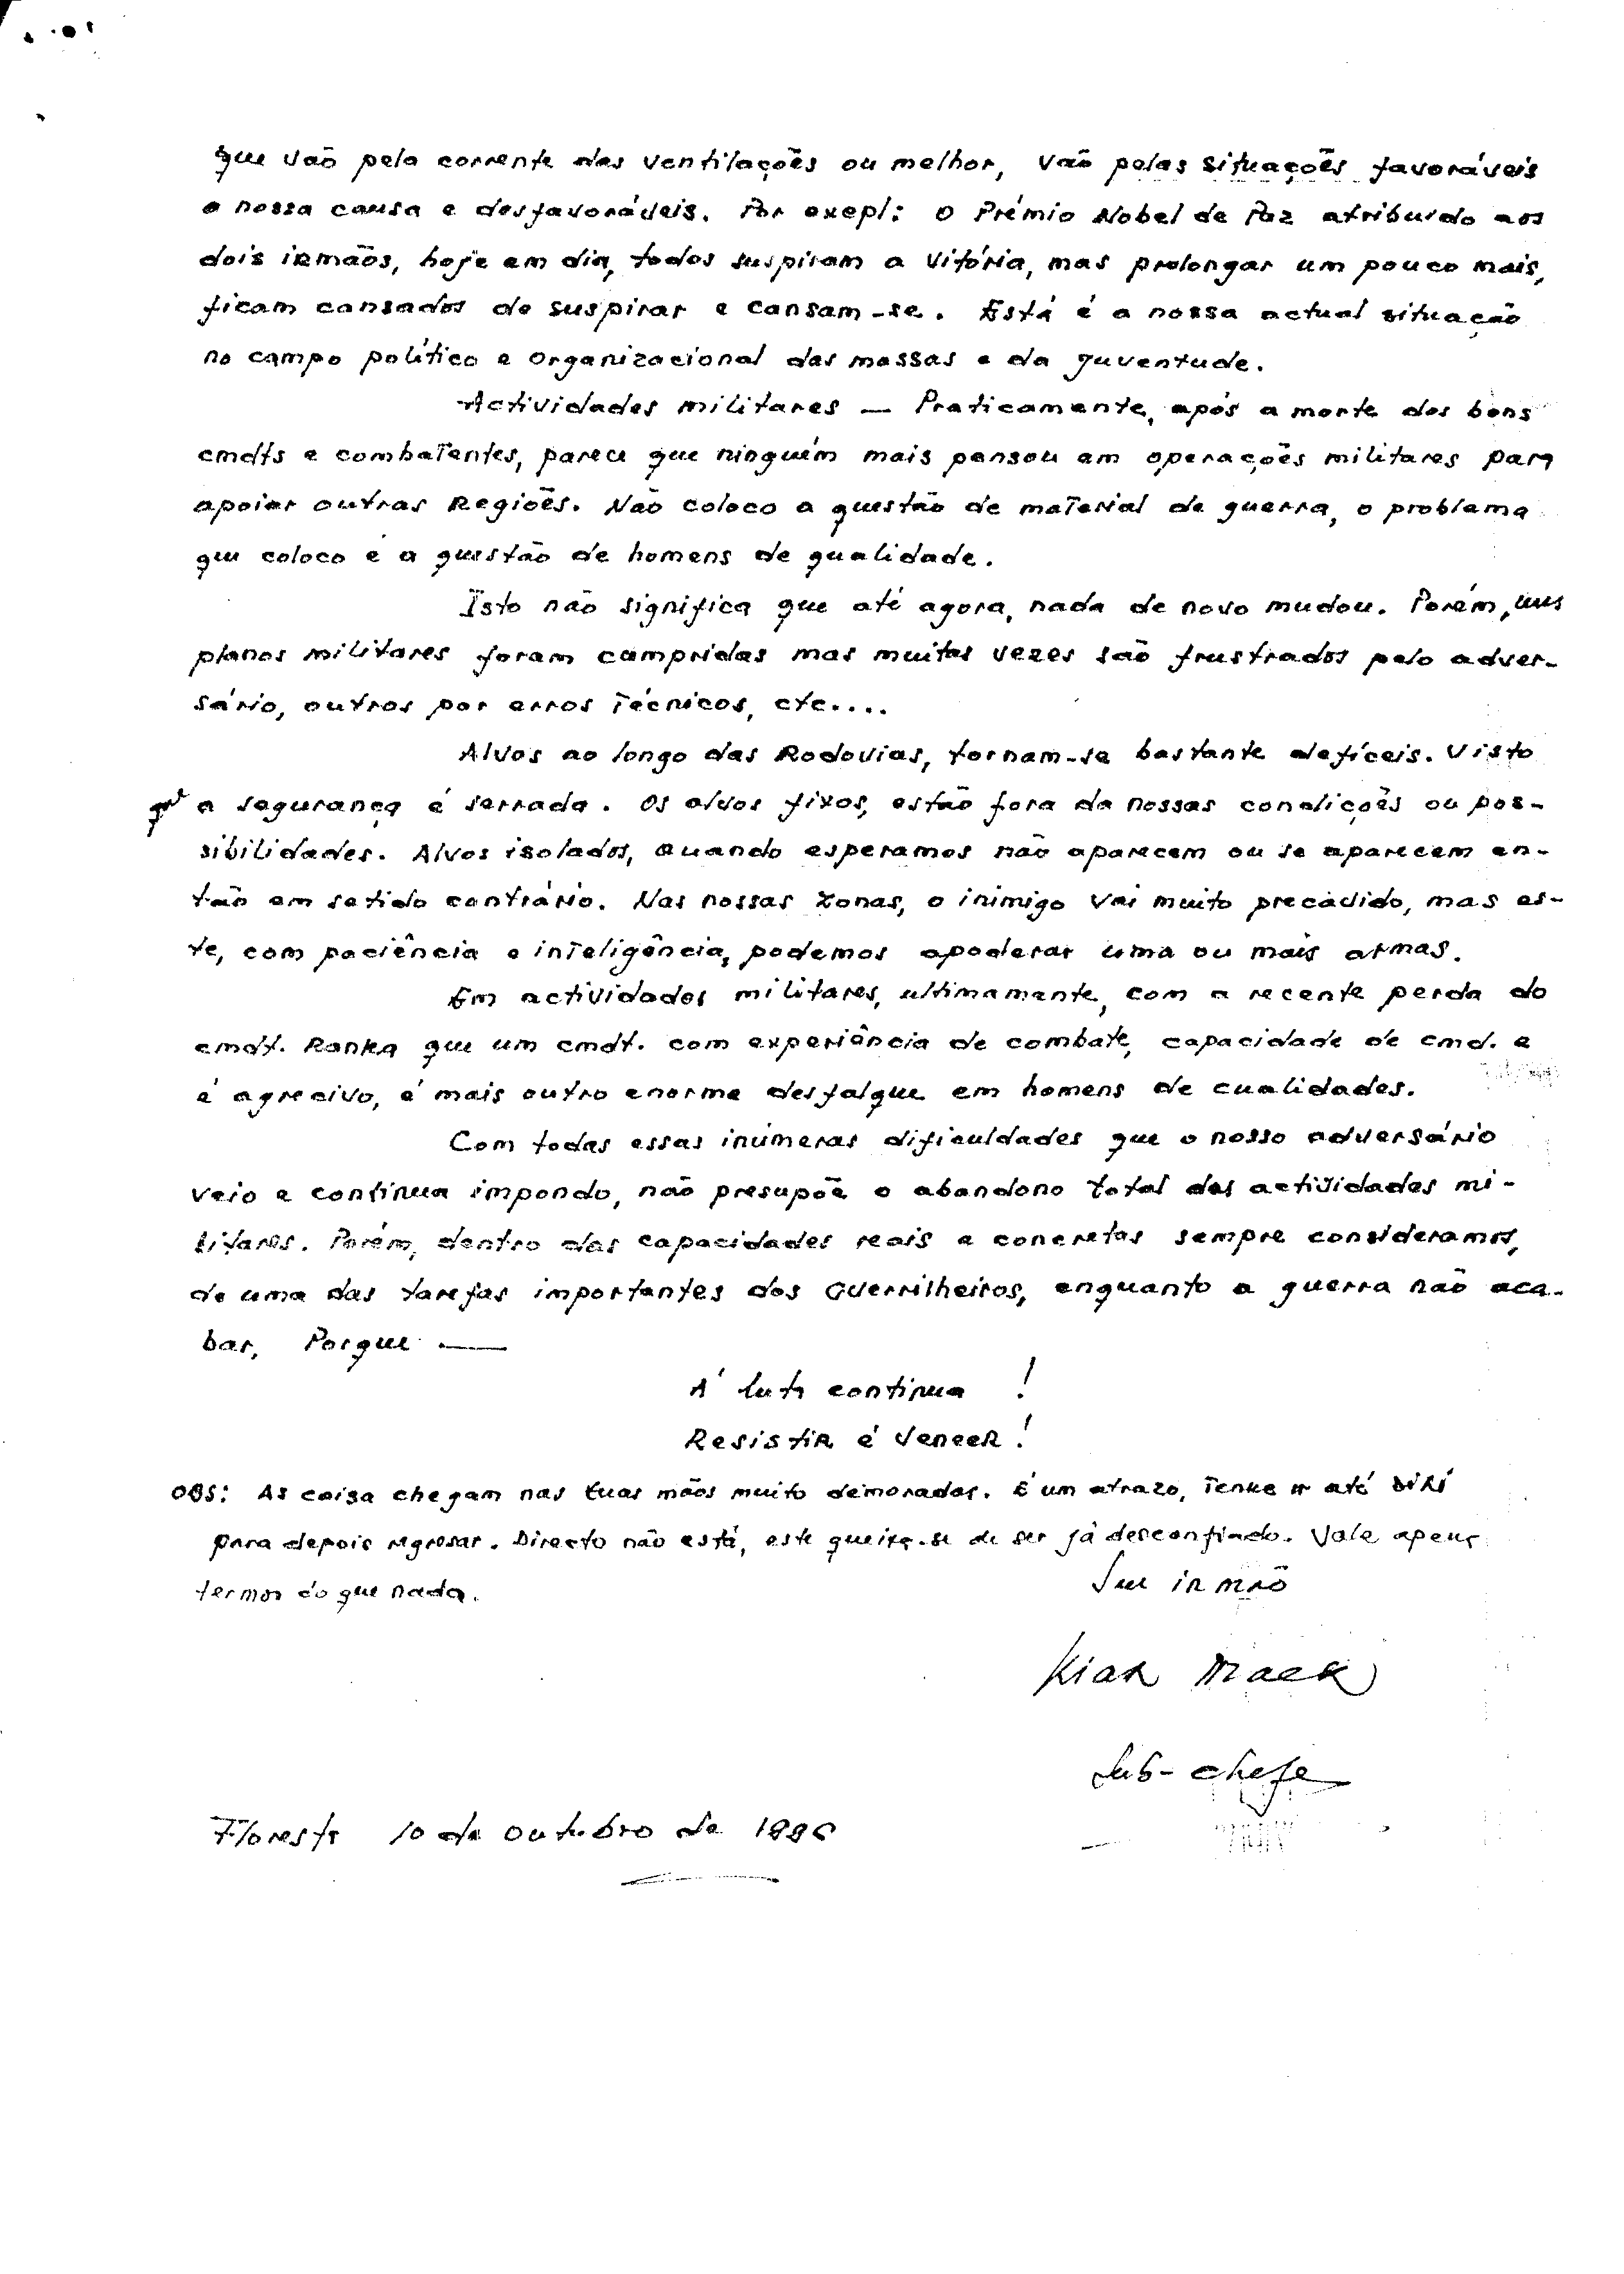 que vão pela corrente das ventilações ou melhor, vão pelas situações favoráveis
a nossa causa e desfavoráveis. Por exepl: O Prémio Nobel de Paz atribuido aos
dois irmãos, hoje em dia, todos suspiram a Vitória, mas prolongar um pouco mais,
ficam cansados de suspirar e cansam-se. Está é a nossa actual situação
no campo político e organizacional das massas e da juventude.
Actividades militares — Praticamente, após a morte dos bons
cmdts e combatentes, parece que ninguém mais pensou em operações militares para
apoiar outras Regiões. Não coloco a questão de material de guerra, o problema
que coloco é a questão de homens de qualidade.
Isto não significa que até agora, nada de novo mudou. Porém, uns
planos militares foram cumpridas mas muitas vezes são frustrados pelo adver-
sário, outros por erros técnicos, etc....
Alvos ao longo das Rodovias, tornam-se bastante defíceis. Visto
que a segurança é serrada. Os alvos fixos, estão fora da nossas condições ou pos-
sibilidades. Alvos isolados, quando esperamos não aparecem ou se aparecem en-
tão em setido contrário. Nas nossas zonas, o inimigo vai muito precàdido, mas es-
te, com paciência e inteligência, podemos apoderar uma ou mais armas.
Em actividades militares, ultimamente, com a recente perda do
cmdt. Ranka que um cmdt. com experiência de combate, capacidade de cmd. e
é agrecivo, é mais outro enorme desfalque em homens de cualidades.
Com todas essas inúmeras dificuldades que o nosso adversário
veio e contínua impondo, não presupõe o abandono total das actividades mi-
litares. Porém, dentro das capacidades reais e concretas sempre consideramos,
de uma das tarefas importantes dos Guerrilheiros, enquanto a guerra não aca-
bar, Porque —
A' luta continua !
Resistir é Vencer !
OBS: As coisa chegam nas tuas mãos muito demorados. É um atrazo, Tenke ir até DILI
para depois regresar. Directo não está, este queixa-se de ser já desconfiado. Vale apena
termos do que nada.
Seu irmão
Sub-chefe
Floresta 10 de outubro de 1996